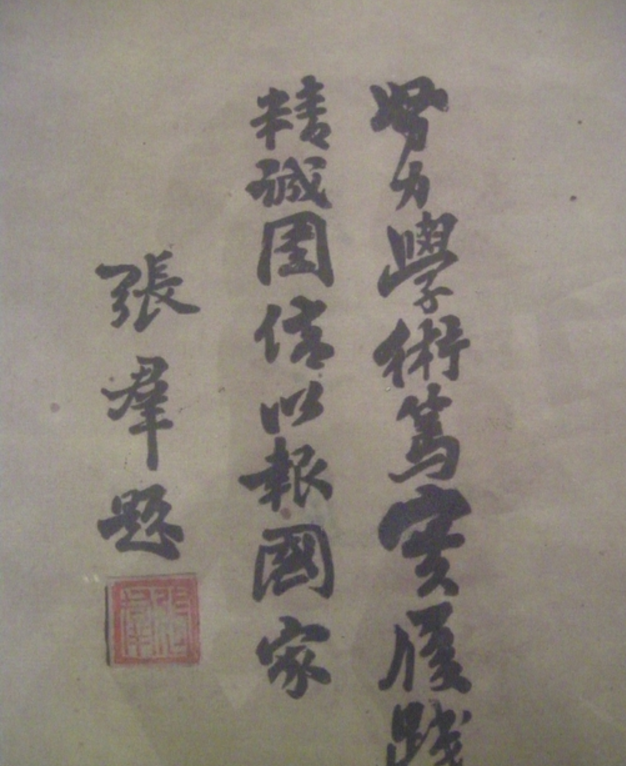 努力學術篤實履踐
精誠團信以報國家
張羣題
張羣